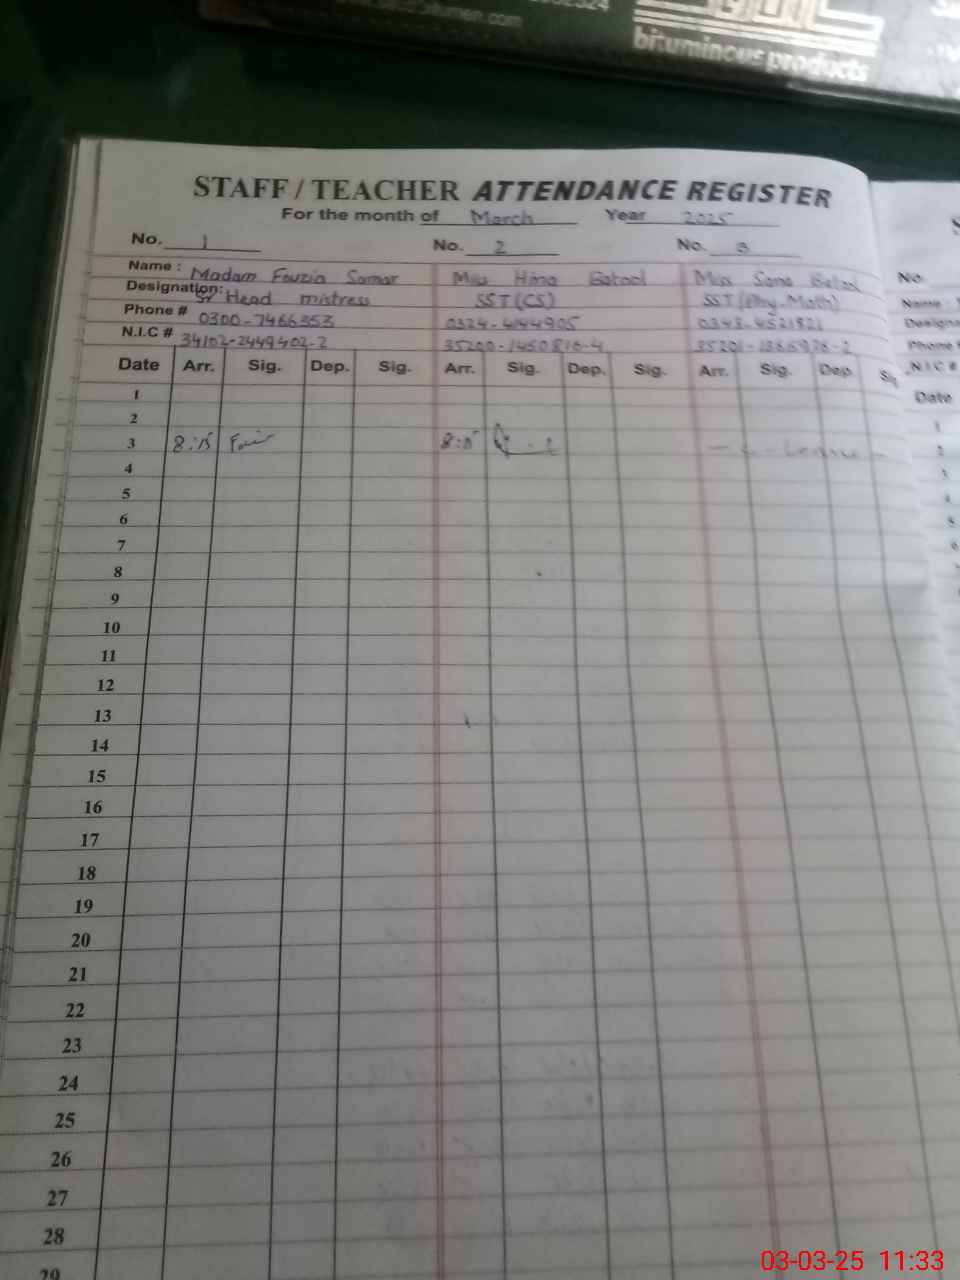 bituminous products
STAFF / TEACHER ATTENDANCE REGISTER
For the month of March Year 2025
No. 1 No. 2 No. 3
Name : Madam Fouzia Samar Miss Hina Batool Miss Sana Batool
Designation: Sr Head mistress SST (CS) SST (Phy-Math)
Phone # 0300-7466353 0324-4144905 0348-4521821
N.I.C # 34102-2449402-2 35200-1450816-4
Date Arr. Sig. Dep. Sig. Arr. Sig. Dep. Sig. Arr. Sig. Dep. Sig
1
2
3 8:15 8:15
4
5
6
7
8
9
10
11
12
13
14
15
16
17
18
19
20
21
22
23
24
25
26
27
28
29
No.
Name :
Phone
N.I.C #
Date
1
2
3
4
5
6
03-03-25 11:33